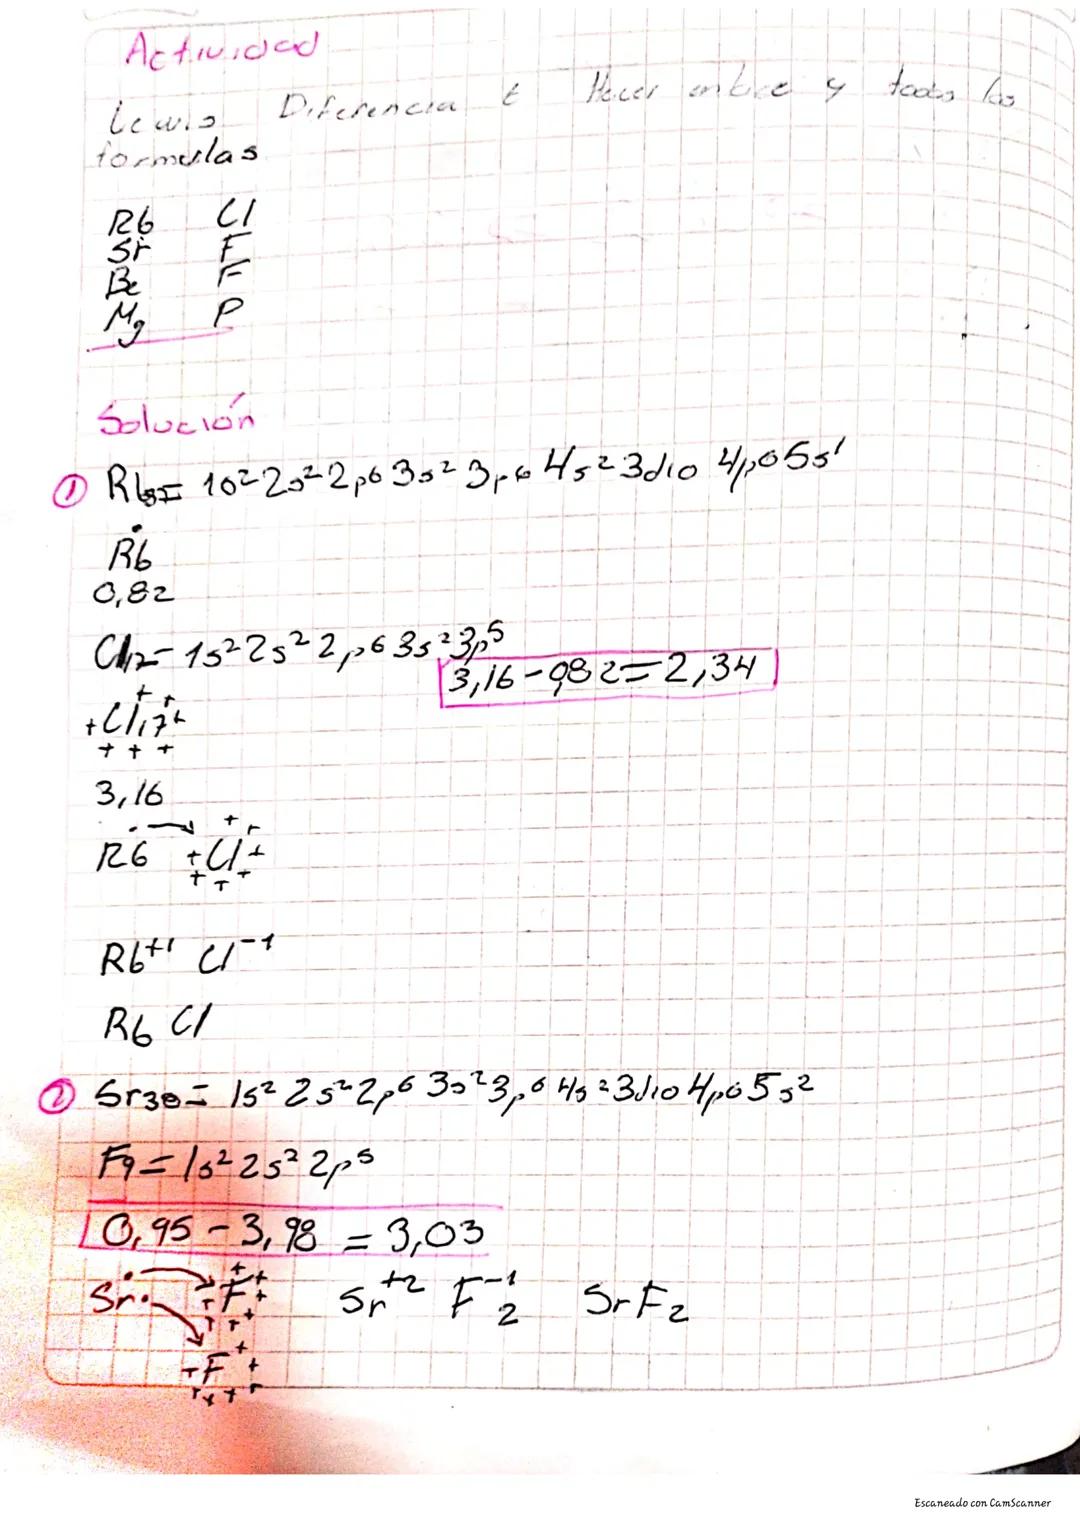 Actividad
Lewis Diferencia E Hacer enlace y todas las
formulas
Rb Cl
Sr F
Be F
Mg P
Solución
① Rb37= 1s² 2s² 2p6 3s² 3p6 4s² 3d10 4p6 5s¹
Rb
0,82
Cl17= 1s² 2s² 2p6 3s² 3p5
3,16-0,82=2,34
+Cl17+
3,16
Rb +Cl+
Rb+1 Cl-1
Rb Cl
② Sr38= 1s² 2s² 2p6 3s² 3p6 4s² 3d10 4p6 5s²
F9= 1s² 2s² 2p5
0,95-3,98 = 3,03
Sr F Sr+2 F2-1 SrF2
F
Escaneado con CamScanner